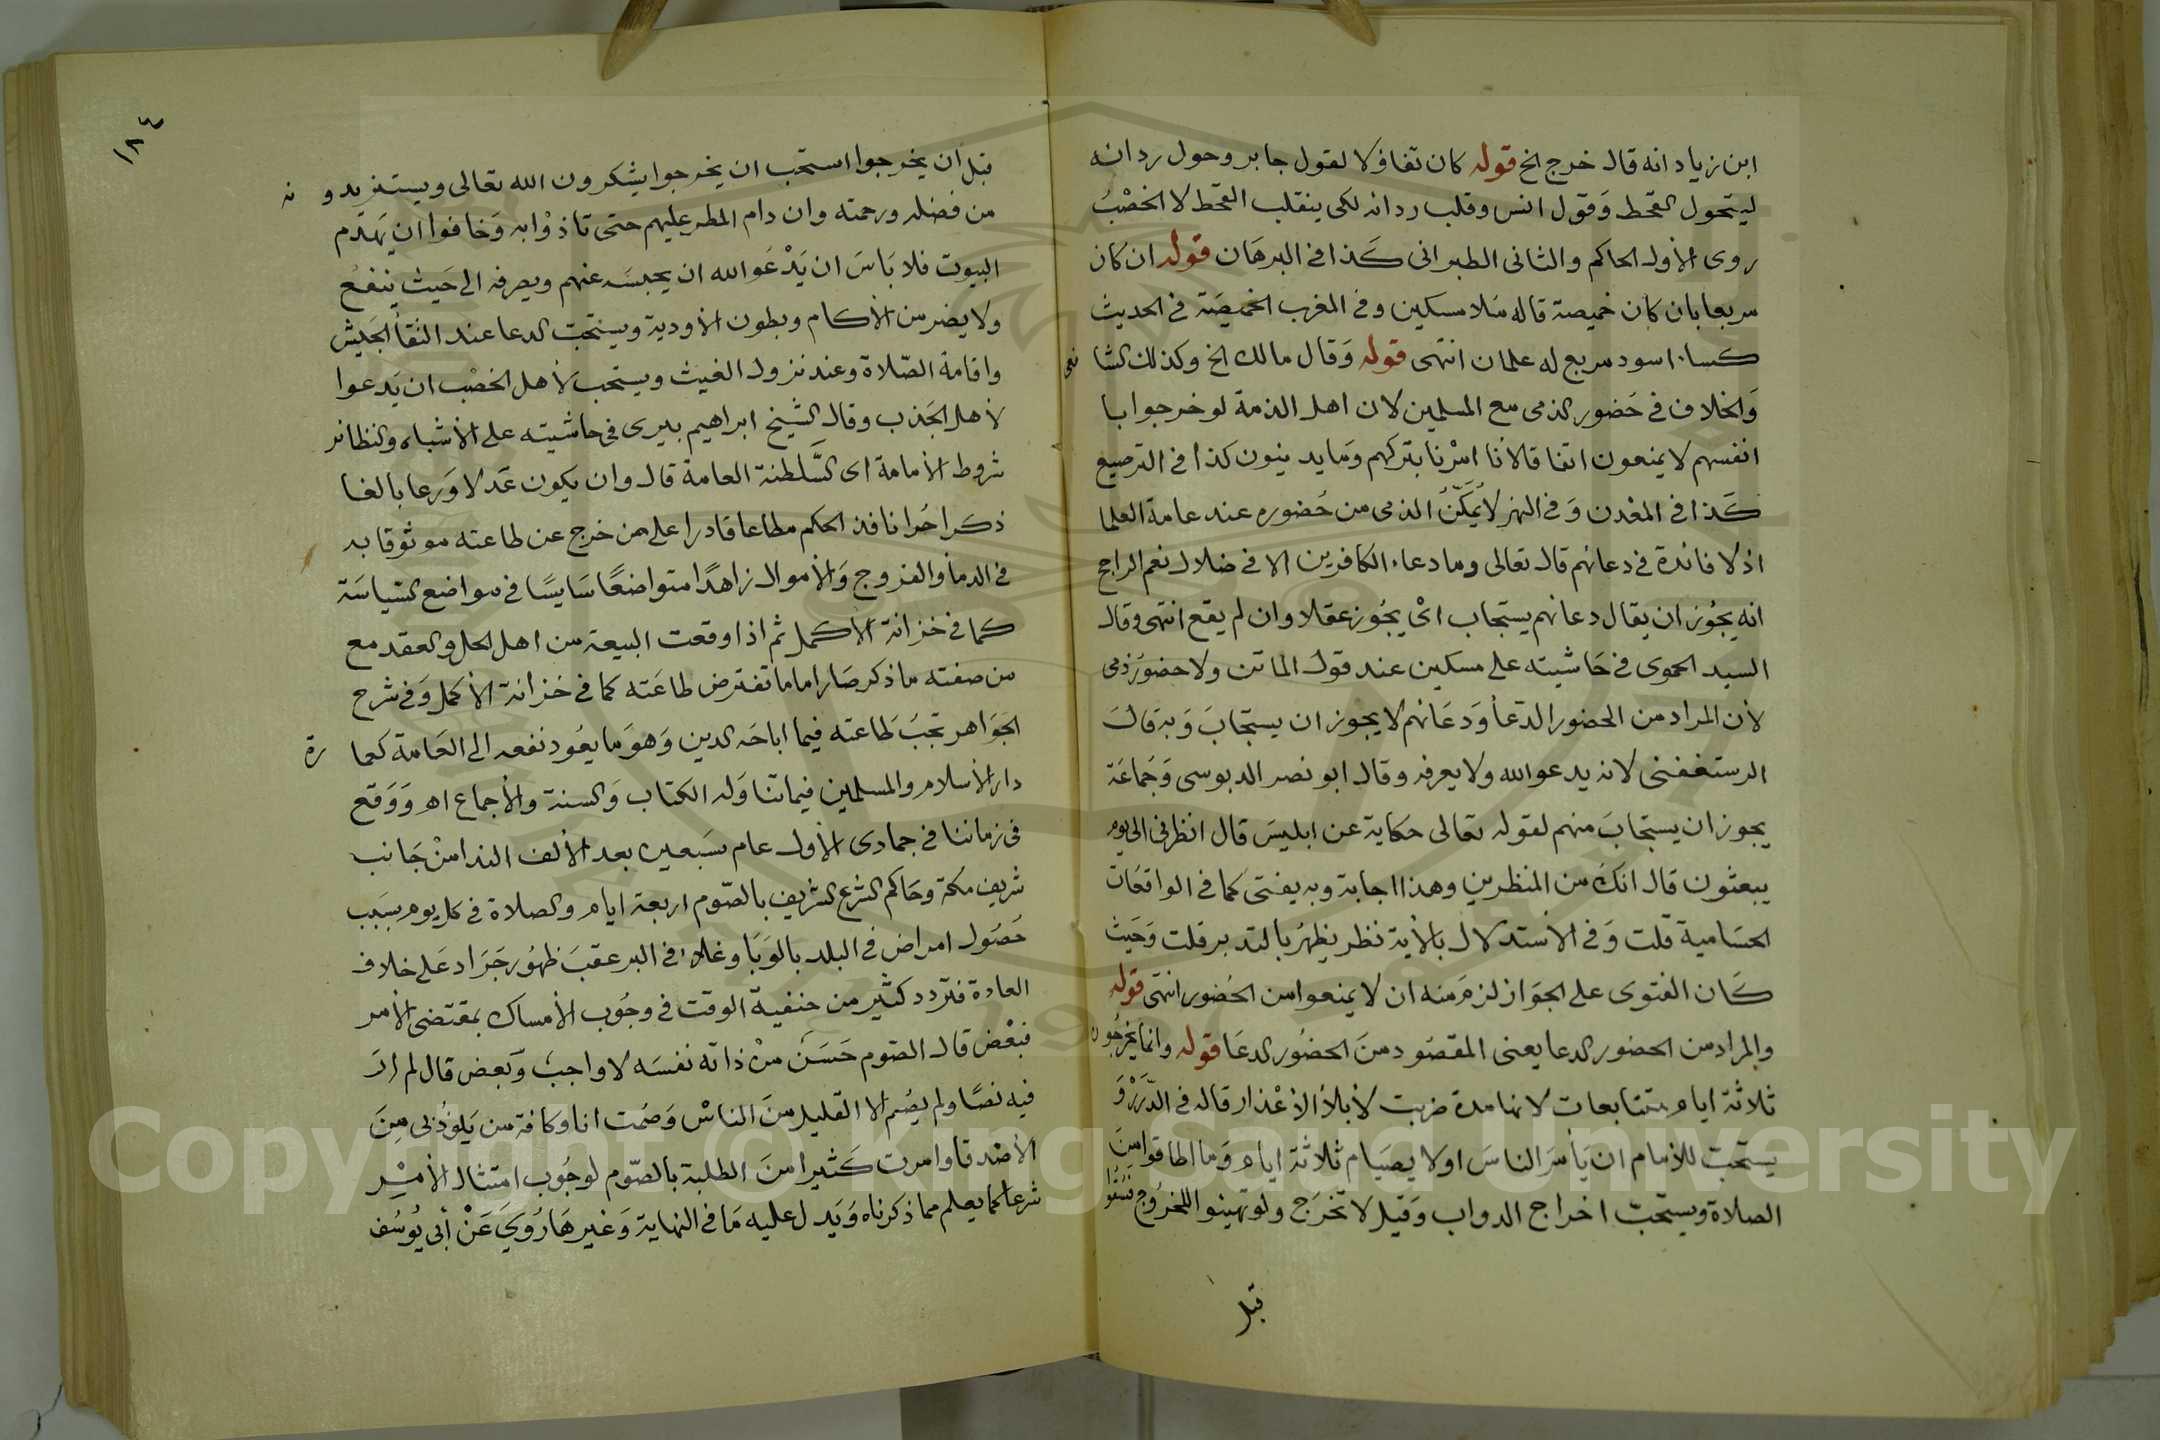 ابن زياد انه قال خرج الخ قوله كان تفاؤلا لقول جابر وحول رداءه
ليتحول القحط وَقول انس وقلب رداءه لكى ينقلب القحط لا الخصْبُ
روى الأول الحاكم والثانى الطبرانى كَذا فى البرهَان قوله ان كان
مربعا بان كان خميصة قاله مَلا مسكين وفى المغرب الخميصَة فى الحديث
كساء اسود مربع له علمان انتهى قوله وَقال مالك الخ وكذلك الشا فعى
وَالخلاف فى حَضور الذمى مع المسلمين لان اهل الذمة لو خرجوا با
انفسهم لا يمنعون اتفاقا لانا امرْنا بتركهم وَما يدينون كذا فى الترصيع
كَذا فى المعْدن وَفى النهر لا يُمَكَّنُ الذمى من حُضوره عند عامة العلما
اذ لا فائدة فى دعائهم قال تعالى وما دعاء الكافرين الا فى ضلال نعم الراجح
انه يجُوز ان يقال دعائهم يستجاب اىْ يجُوز عقلا وان لم يقع انتهى وقال
السيد الحموى فى حَاشيته على مسكين عند قول الماتن ولا حضورُ ذمى
لأن المراد من الحضور الدّعاُ وَدعَائهم لا يجوز ان يستجابَ وَبه قالَ
الرستغفنى لانه يدعو الله ولا يعرفه وقال ابو نصر الدبوسى وَجَماعَة
يجوز ان يستجابَ منهم لقوله تعالى حكاية عن ابليسَ قال انظرنى الى يوم
يبعثون قال انكَ من المنظرين وهذا اجابة وبه يفتى كما فى الواقعَات
الحسَامية قلت وَفى الأستدلال بالأية نظر يظهرُ بالتدبر قلت وَحَيث
كَان الفتوى على الجوَاز لزمَ منه ان لا يمنعوا من الحُضور انتهى قوله
والمراد من الحضور الدعا يعنى المقصُود منَ الحضُور الدعَا قوله وانما يخرجُون
ثلاثة ايام متتابعات لانها مدة ضربت لأبلاْ الأعْذار قاله فى الدّرَرْ وَ
يستحبّ للأمام ان يَأمرَ الناسَ اولا بصيَام ثلاثة ايام وَما اطاقوا منَ
الصلاة ويستحبّ اخراج الدواب وَقيل لا تخرَج ولو تهيئوا للخرُوج فَسُقُوا
قبل
١٨٤
قبل ان يخرجوا استحب ان يخرجوا يشكرون الله تعالى ويستزيدو نه
من فضله ورحمته وان دام المطر عليهم حتى تاذوْا به وَخافوا ان يهَدّم
البيوت فلا بَاسَ ان يَدْعُو الله ان يحبسَه عنهم ويصرفه الى حَيث ينفعُ
ولا يضر من الأكام وبطون الأودية ويستحبّ الدعا عند التقاْ الجَيش
واقامة الصّلاة وعند نزول الغيث ويستحب لأهل الخصْب ان يَدعوا
لأهل الجَدب وقال الشيخ ابراهيم بيرى فى حاشيته على الأشباه والنظائر
شروط الأمامة اى السَّلطنة العامة قال وان يكون عَدلا وَرعا بالغا
ذكرا حُرا نافذ الحكم مطاعا قادرا على من خرج عن طاعته موثوقا به
فى الدماْ والفروج وَالأموال زاهدًا متواضعًا سَايسًا فى مواضع السّياسَة
كما فى خزانة الأكمل ثم اذا وقعت البيعة من اهل الحل والعقد مع
من صفته ما ذكر صَار اماما تفترض طاعَته كما فى خزانة الأكمل وَفى شرح
الجوَاهر تجبُ طَاعته فيما اباحَه الدين وَهوَ ما يعُود نفعه الى العَامة كعما رة
دار الأسلام والمسلمين فيما تناوَله الكتاب وَالسنة والأجماع اهـ وَوَقع
فى زماننا فى جمادى الأول عام سَبعين بعد الألف الندا منْ جَانب
شريف مكة وحَاكم الشرع الشريف بالصّوم اربعة ايام والصلاة فى كل يوم بسَبب
حَصُول امراض فى البلد بالوَبَا وغلاء فى البر عقبَ ظهُور جَرَاد عَلى خلاف
العادة فتردد كثير من حنفية الوقت فى وجُوب الأمساك بمقتضى الأمر
فبعْض قال الصّوم حَسَنَ منْ ذاته نفسَه لا واجبُ وَبَعض قال لم ارَ
فيه نصًا ولم يصُم الا القليل منَ الناسْ وَصُمت انا وكافة من يَلوذُ بى مِنَ
الأصْدقا وامرت كَثيرا منَ الطلبة بالصّوم لوجُوب امتثال الأمْر
شرعا كما يعلم مما ذكرناه وَيَدل عليه مَا فى النهاية وَغيرهَا رُويَ عَنْ أبى يُوسُف
Copyright © King Saud University